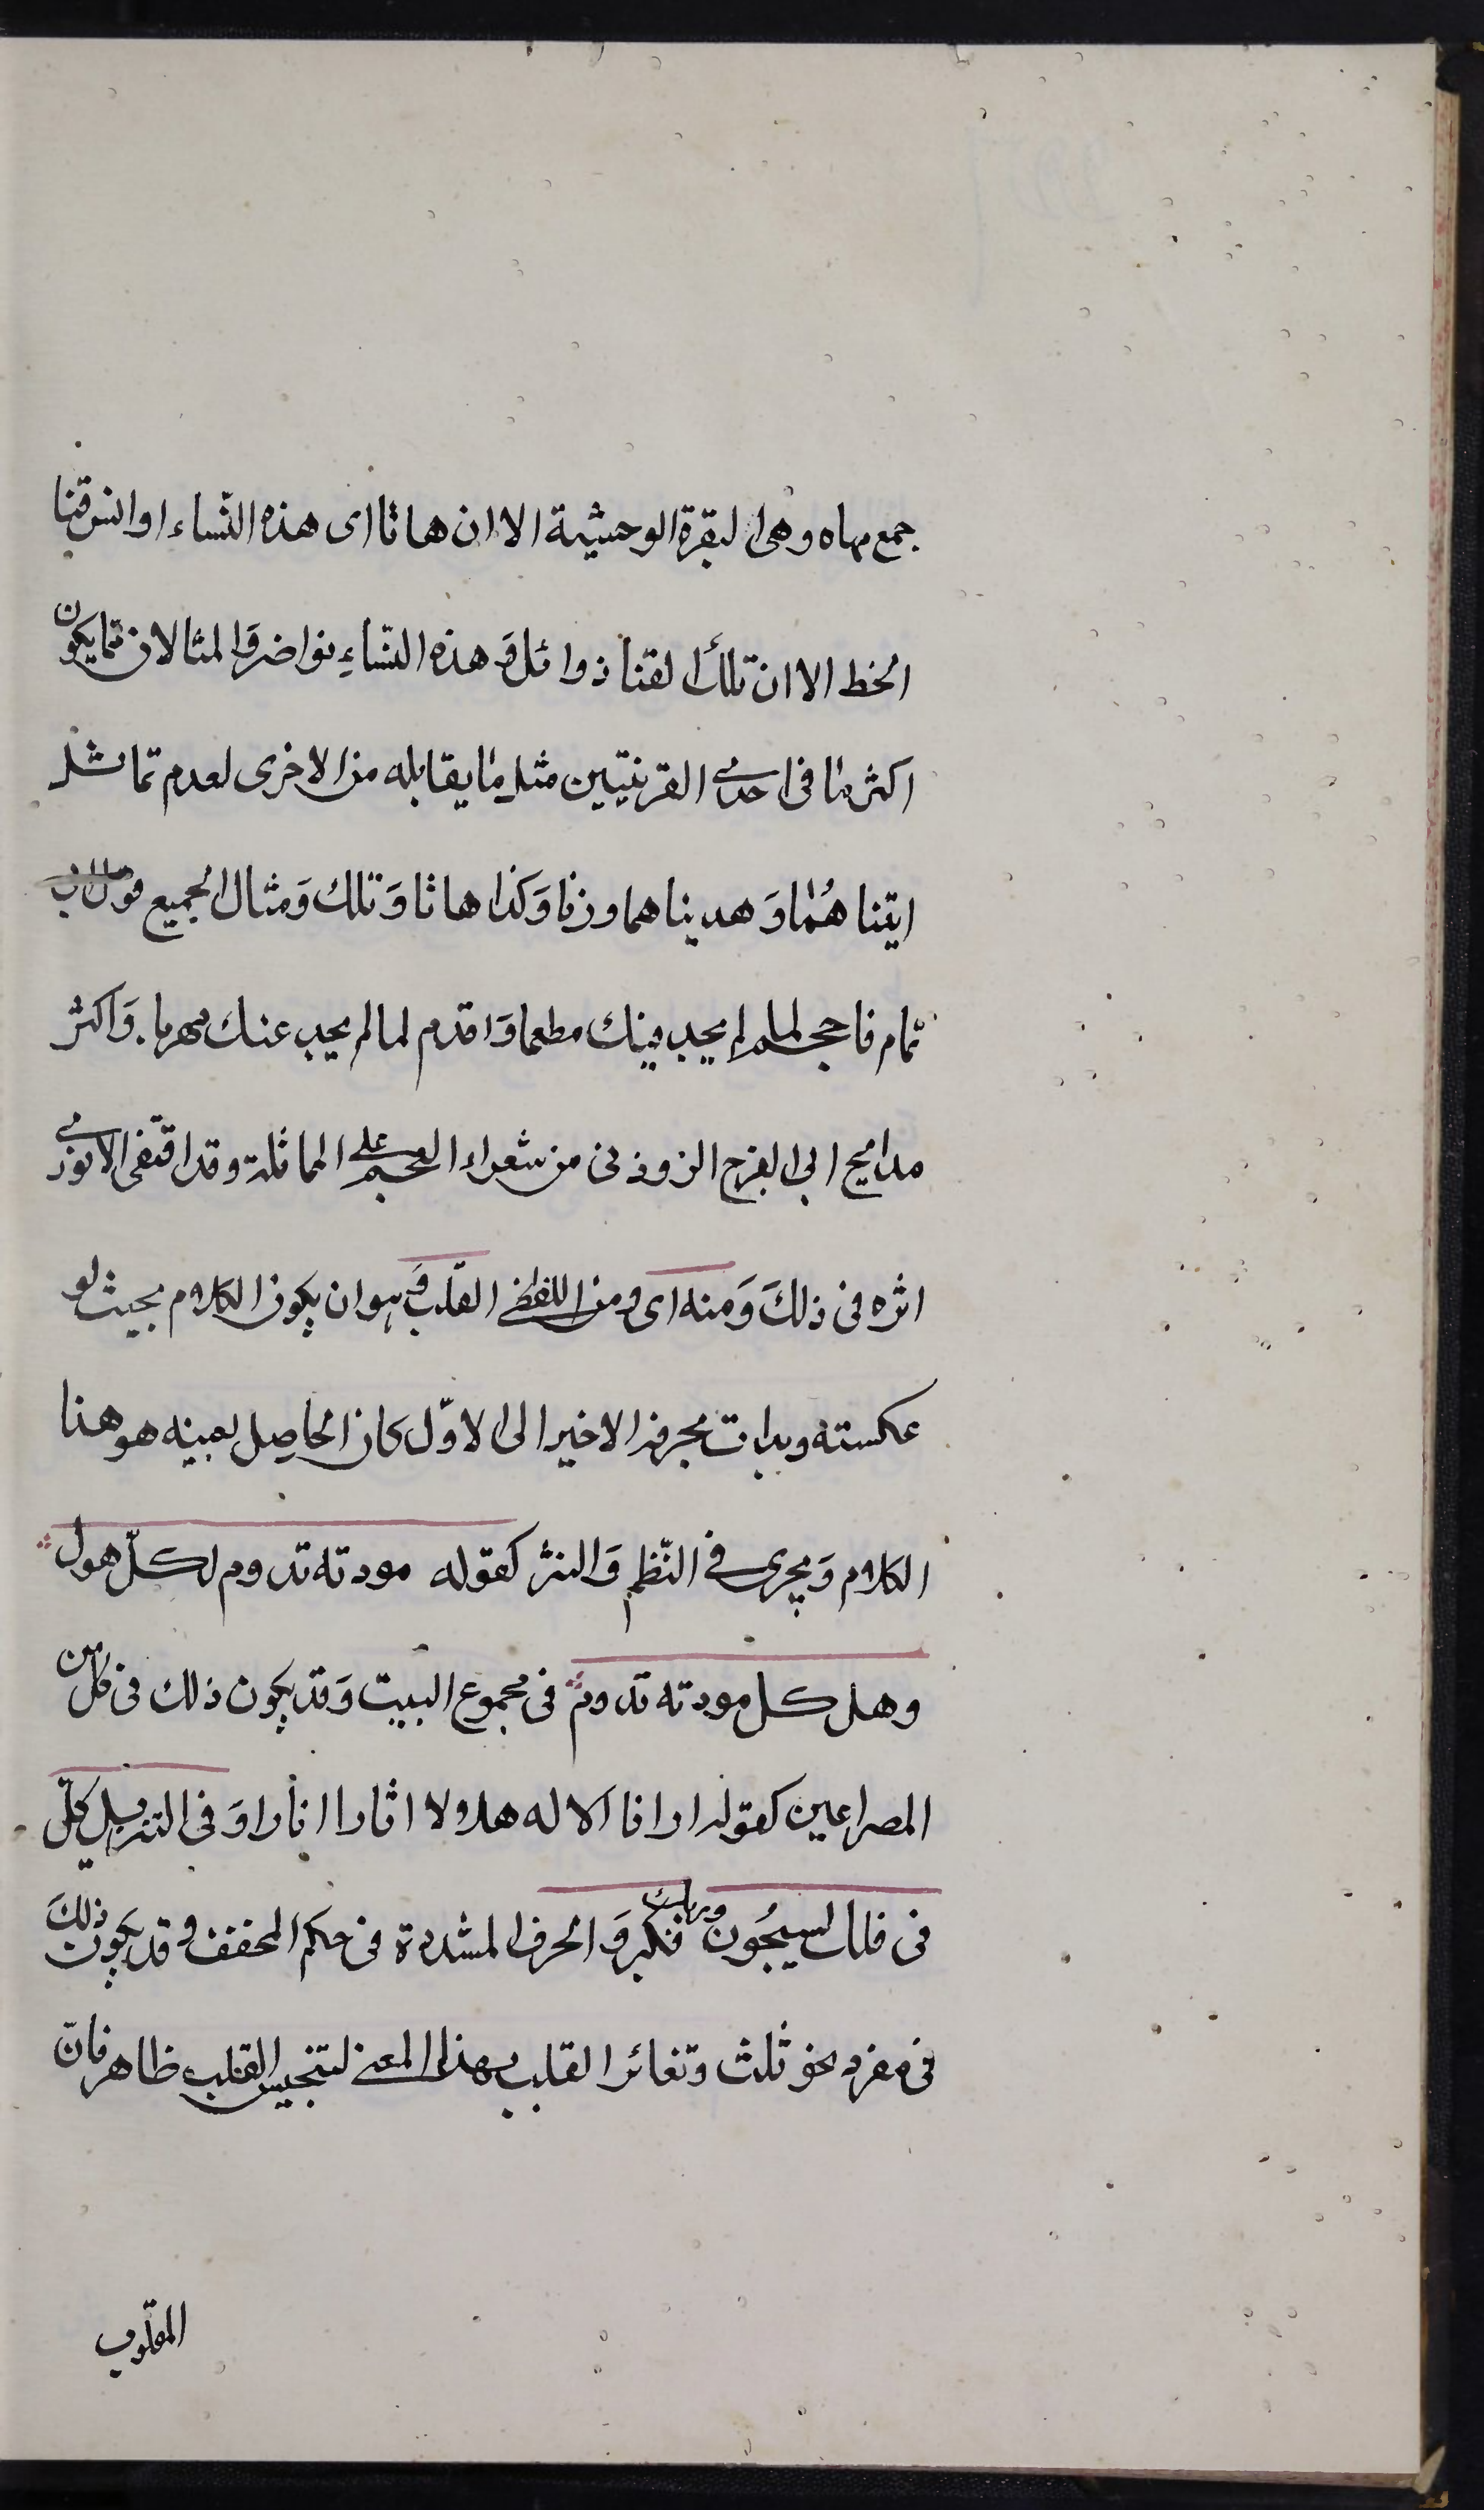 جمع مهاه وهى البقرة الوحشية الا ان هاتا اى هذه النّساء اوانس قنا
الخط الا ان تلك القنا ذوائل وَ هذه النّساءِ نواضر وَالمثالان مما يكون
اكثر ما فى احدى القرينتين مثل ما يقابله من الاخرى لعدم تماثل
اتينا هُما وَ هديناهما وزنا وَكذا هاتا وَ تلك وَمثال الجميع قول ابى
تمام فاحجم لما لم يجد فيك مطعما وَاقدم لما لم يجد عنك مهربا وَاكثر
مدايح ابى الفرج الزونى من شعراء العجم على المماثلة وقد اقتفى الانورى
اثره فى ذلكَ وَمنه اى ومن اللفظى القلب وَهو ان يكون الكلام بحيث لو
عكسته وبدات بحرفه الاخير الى الاوّل كان الحاصل بعينه هو هذا
الكلام وَيجرى فى النّظم وَالنثر كقوله مودته تدوم لكلّ هول
وهل كل مودته تدوم فى مجموع البيت وَقد يكون ذلك فى كل من
المصراعين كقوله ارانا الاله هلالا انارا وَ فى التنزيل كلّ
فى فلك يسبحُون وربك فكبر وَ الحرف المشددة فى حكم المخفف وقد يكون ذلكَ
فى مفرد نحو ثلث وتغائر القلب بهذا المعنى لتجنيس القلب ظاهر فانّ
المقلوب